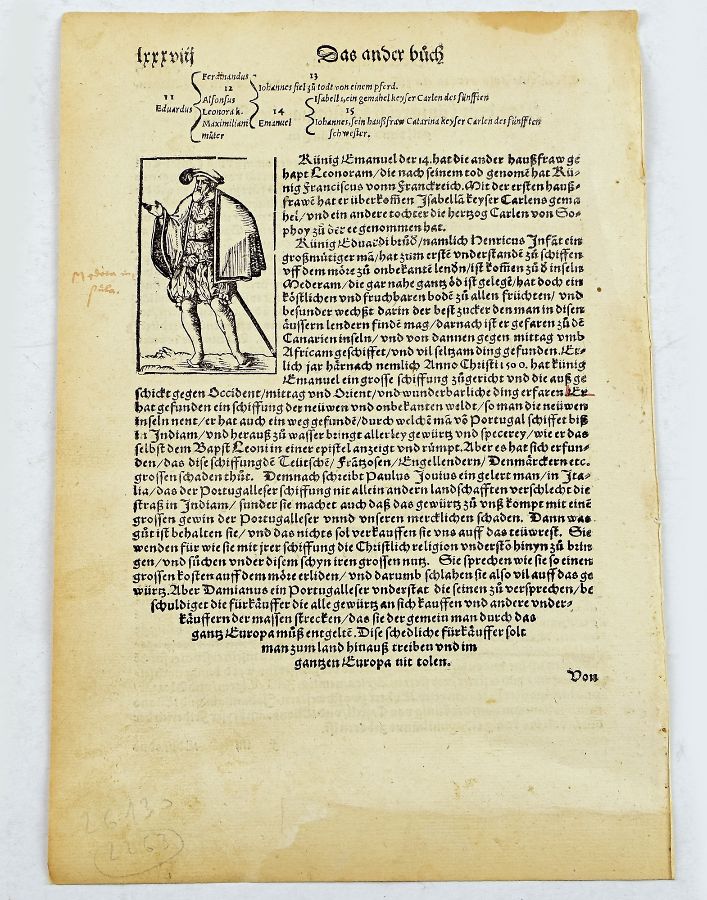 lxxxviij
Das ander bůch
Ferdinandus 13
12 Iohannes fiel zů todt von einem pferd.
11 Alfonsus Isabella, ein gemahel keyser Carlen des fünfften
Eduardus Leonora k. 14 15
Maximilian Emanuel Iohannes, sein haußfraw Catarina keyser Carlen des fünfften
můter schwester.
Künig Emanuel der 14. hat die ander haußfraw ge
hapt Leonoram/die nach seinem tod genomē hat Kü-
nig Franciscus vonn Franckreich. Mit der ersten hauß-
frawē hat er überkoḿen Isabellā keyser Carlens gema
hel/vnd ein andere tochter die hertzog Carlen von So-
phoy zů der ee genommen hat.
Künig Eduardi brůd/namlich Henricus Infāt ein
großmůtiger mā/hat zum erstē vnderstandē zů schiffen
vff dem möre zů onbekantē lendn/ist koḿen zůd inseln
Mederam/die gar nahe gantz öd ist gelegē/hat doch ein
köstlichen und fruchbaren bodē zů allen früchten/ vnd
besunder wechßt darin der best zucker den man in disen
äussern lendern findē mag/darnach ist er gefaren zů dē
Canarien inseln/ vnd von dannen gegen mittag vmb
Africam geschiffet/vnd vil seltzam ding gefunden. Et-
lich jar härnach nemlich Anno Christi 1500. hat künig
Emanuel ein grosse schiffung zůgericht vnd die auß ge
schickt gegen Occident/mittag vnd Orient/vnd wunderbarliche ding erfaren. Er
hat gefunden ein schiffung der neüwen vnd onbekanten weldt/so man die neüwen
inseln nent/er hat auch ein weg gefundē/durch welchē mā vō Portugal schiffet biß
in Indiam/vnd herauß zů wasser bringt allerley gewürtz vnd specerey/wie er das
selbst dem Bapst Leoni in einer epistel anzeigt vnd rümpt. Aber es hat sich erfun-
den/das dise schiffung dē Teütschē/Frātzosen/Engellendern/Denmärckern etc.
grossen schaden thůt. Demnach schreibt Paulus Jouius ein gelert man/in Jta-
lia/das der Portugalleser schiffung nit allein andern landschafften verschlecht die
straß in Jndiam/ sunder sie machet auch daß das gewürtz zů vnß kompt mit einē
grossen gewin der Portugalleser vnnd vnseren mercklichen schaden. Dann was
gůt ist behalten sie/ vnd das nichts sol verkauffen sie vns auff das teüwrest. Sie
wenden für wie sie mit jrer schiffung die Christlich religion vnderstō hinyn zů brin
gen/vnd sůchen vnder disem schyn iren grossen nutz. Sie sprechen wie sie so einen
grossen kosten auff dem möre erliden/ vnd darumb schlahen sie also vil auff das ge
würtz. Aber Damianus ein Portugalleser vnderstat die seinen zů versprechen/be
schuldiget die fürkäuffer die alle gewürtz an sich kauffen vnd andere vnder-
käuffern der massen strecken/das sie der gemein man durch das
gantz Europa můß entgeltē. Dise schedliche fürkäuffer solt
man zum land hinauß treiben vnd im
gantzen Europa nit tolen.
Von
Medera in-
sula.
2263